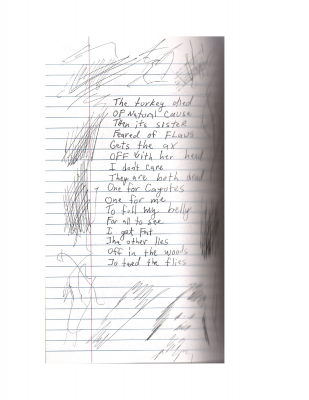 The turkey died
OF Natural Cause
Then its sister
Feared of Flaws
Gets the ax
OFF With her head
I don't care
They are both dead
One for Coyotes
One for me
To full my belly
For all to see
I get Fat
The other lies
Off in the woods
To feed the flies